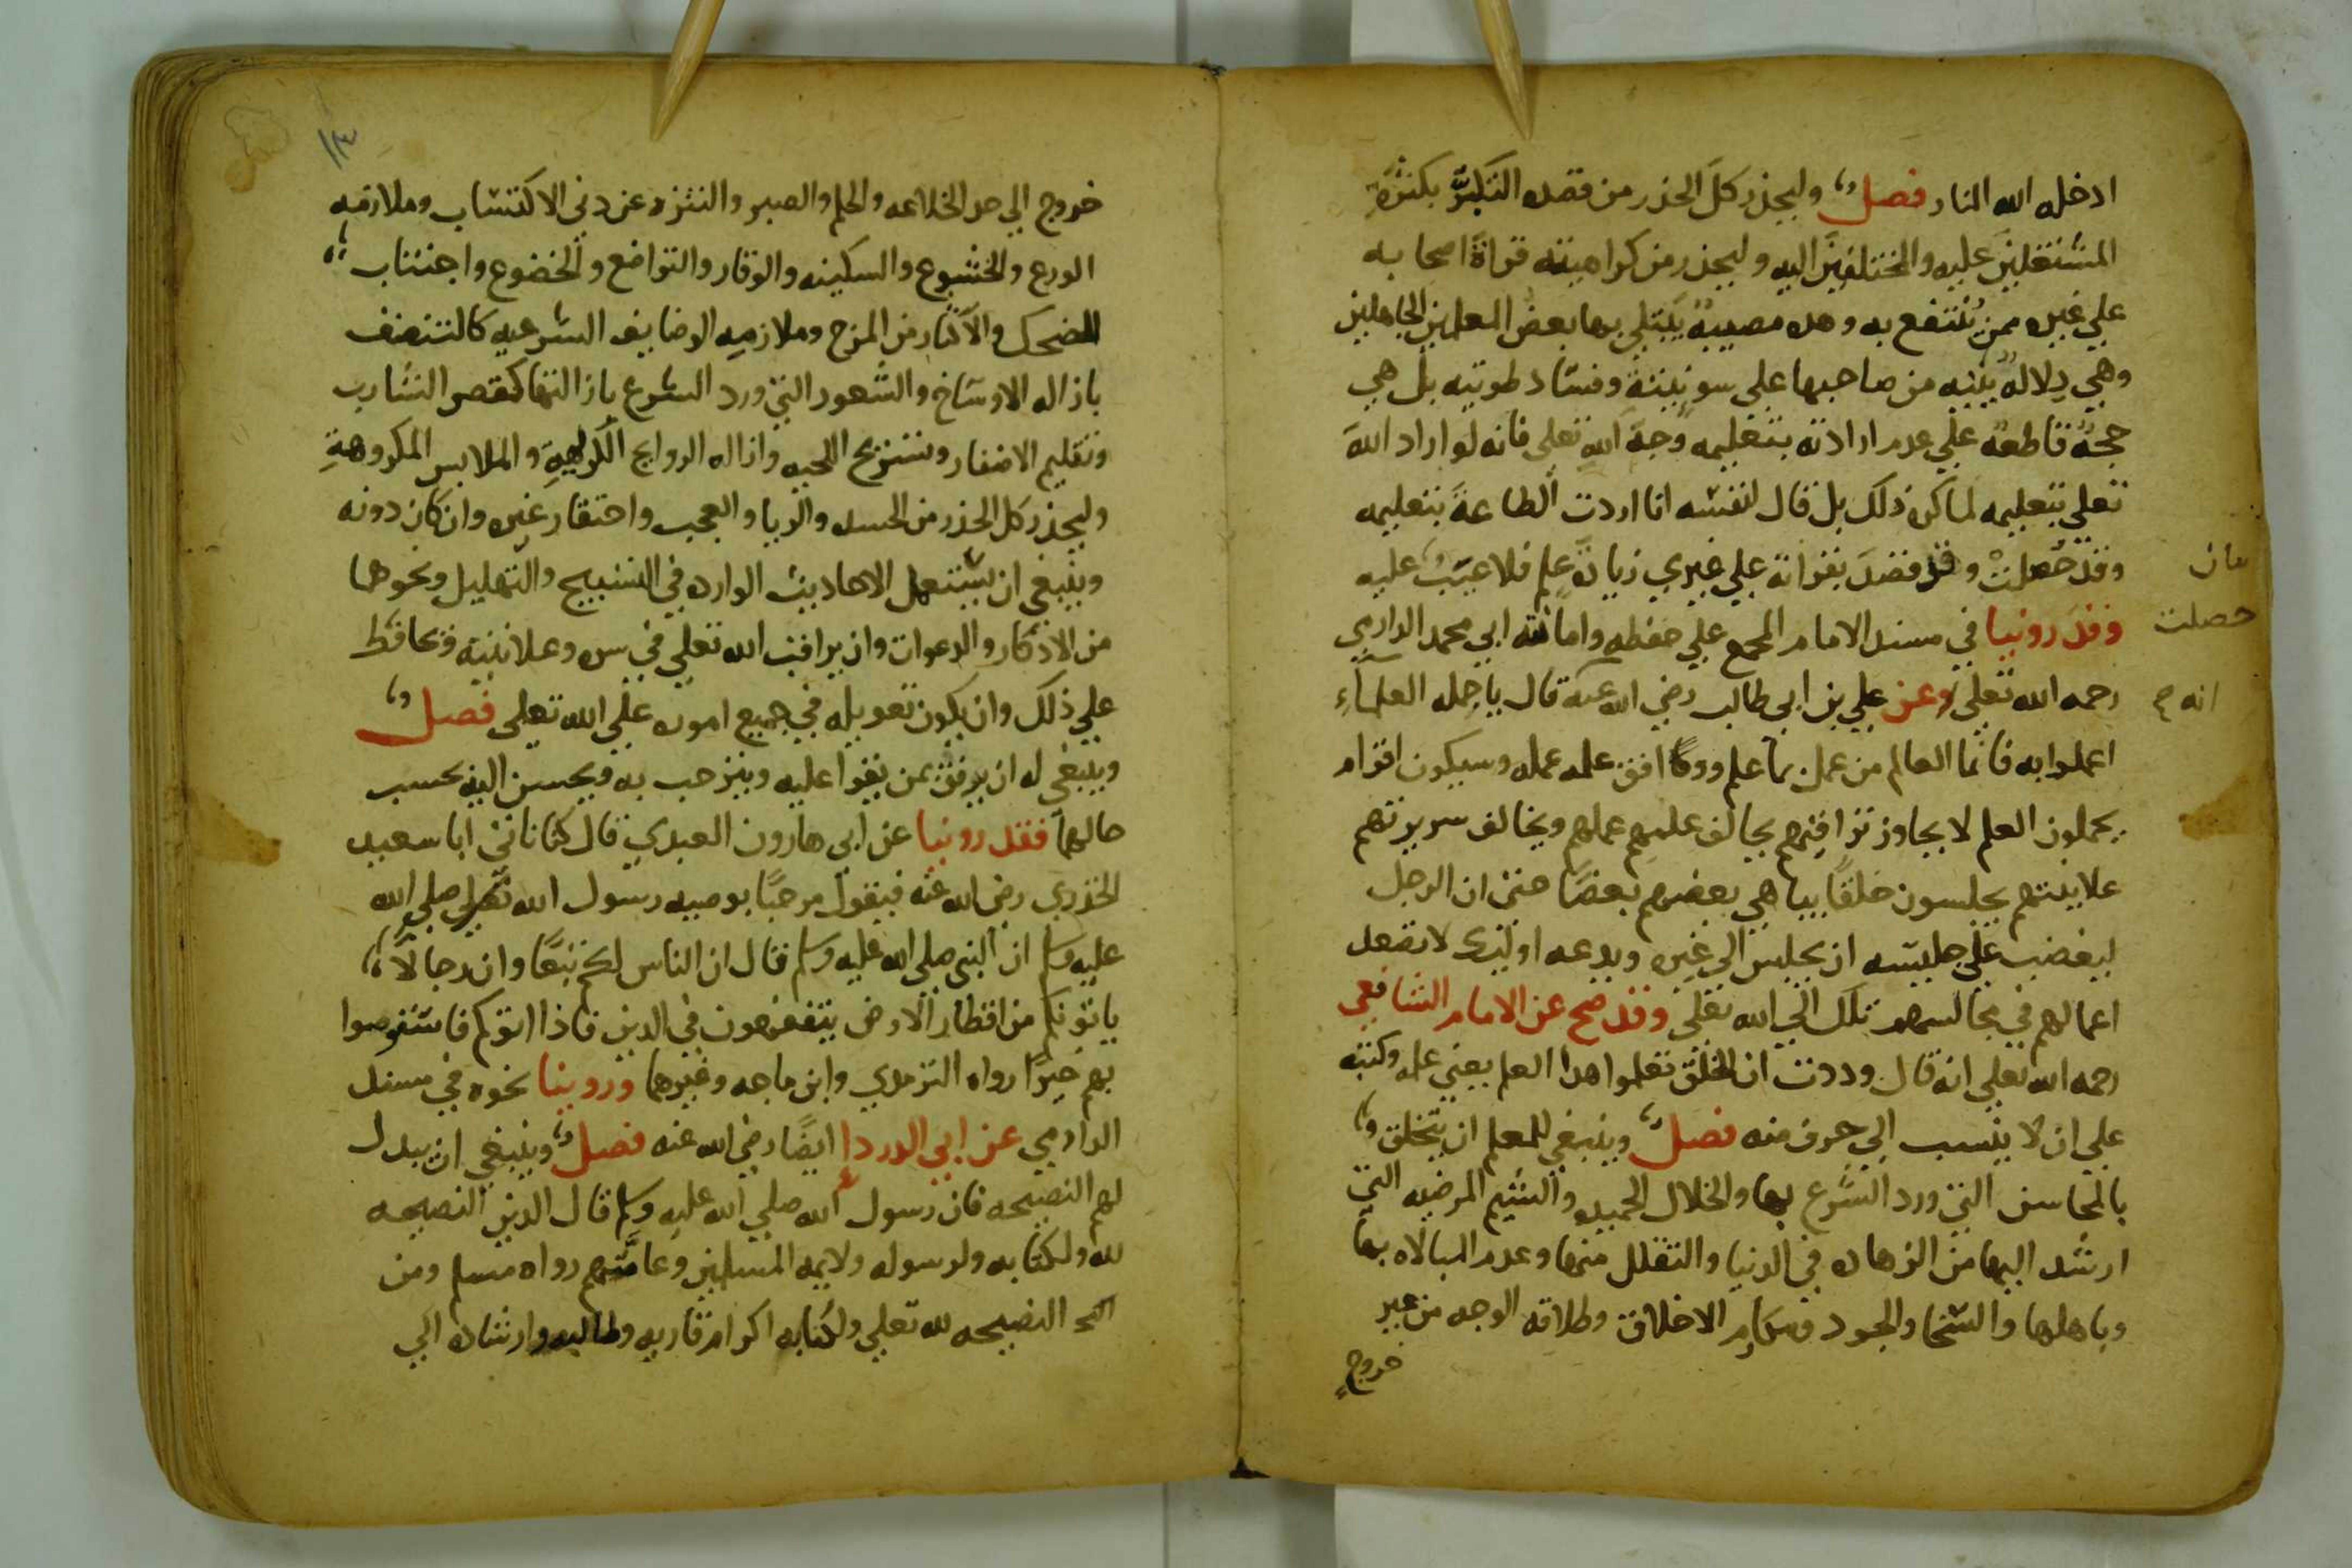 ادخله الله النار فصل وليحذر كل الحذر من قصده التكثر بكثرة
المشتغلين عليه والمختلفين اليه وليحذر من كراهيته قراة اصحابه
علي غيره ممن ينتفع به وهذه مصيبة يبتلي بها بعض المعلمين الجاهلين
وهي دلالة بينه من صاحبها علي سو نيته وفساد طويته بل هي
حجة قاطعة علي عدم ارادته بتعليمه وجه الله تعلي فانه لو اراد الله
تعلي بتعليمه لما كره ذلك بل قال لنفسه انا اردت الطاعة بتعليمه
وقد حصلت وقد قصد بقراته علي غيري زيادة علم فلا عتب عليه
وقد روينا في مسند الامام المجمع علي حفظه وامانته ابي محمد الدارمي
رحمه الله تعلي وعن علي بن ابي طالب رضي الله عنه قال يا حملة العلماء
اعملوا به فانما العالم من عمل بما علم ووافق علمه عمله وسيكون اقوام
يحملون العلم لا يجاوز تراقيهم يخالف علمهم عملهم ويخالف سريرتهم
علانيتهم يجلسون حلقا يباهي بعضهم بعضا حتى ان الرجل
ليغضب علي جليسه ان يجلس الي غيره ويدعه اوليك لا تصعد
اعمالهم في مجالسهم تلك الي الله تعلي وقد صح عن الامام الشافعي
رحمه الله تعلي انه قال وددت ان الخلق تعلموا هذا العلم يعني علمه وكتبه
علي ان لا ينسب الي حرف منه فصل وينبغي للمعلم ان يتخلق
بالمحاسن التي ورد الشرع بها والخلال الحميده والشيم المرضيه التي
ارشد اليها من الزهاده في الدنيا والتقلل منها وعدم المبالاه بها
وباهلها والسخا والجود ومكارم الاخلاق وطلاقه الوجه من غير
خروج
حصلت
انه
خروج الي حد الخلاعه والحلم والصبر والتنزه عن دني الاكتساب وملازمه
الورع والخشوع والسكينه والوقار والتواضع والخضوع واجتناب
الضحك والاكثار من المزح وملازمه الوضايف الشرعيه كالتنضف
بازاله الاوساخ والشعور التي ورد الشرع بازالتها كقص الشارب
وتقليم الاضفار وتسريح اللحيه وازاله الروايح الكريهة والملابس المكروهة
وليحذر كل الحذر من الحسد والريا والعجب واحتقار غيره وان كان دونه
وينبغي ان يستعمل الاحاديث الوارده في التسبيح والتهليل ونحوهما
من الاذكار والدعوات وان يراقب الله تعلي في سره وعلانيته ويحافظ
علي ذلك وان يكون تعويله في جميع اموره علي الله تعلي فصل
وينبغي له ان يرفق بمن يقرا عليه وينرحب به ويحسن اليه بحسب
حالهما فقد روينا عن ابي هارون العبدي قال كنا ناتي ابا سعيد
الخدري رضي الله عنه فيقول مرحبا بوصيه رسول الله صلي الله
عليه وسلم ان النبي صلي الله عليه وسلم قال ان الناس لكم تبعا وان رجالا
ياتونكم من اقطار الارض يتفقهون في الدين فاذا اتوكم فاستوصوا
بهم خيرا رواه الترمدي وابن ماجه وغيرهما وروينا نحوه في مسند
الدارمي عن ابي الدردا ايضا رضي الله عنه فصل وينبغي ان يبدل
لهم النصيحه فان رسول الله صلي الله عليه وسلم قال الدين النصيحه
لله ولكتابه ولرسوله ولايمه المسلمين وعامتهم رواه مسلم ومن
النصيحه لله تعلي ولكتابه اكرام قاريه وطالبه وارشاده الي
١٣